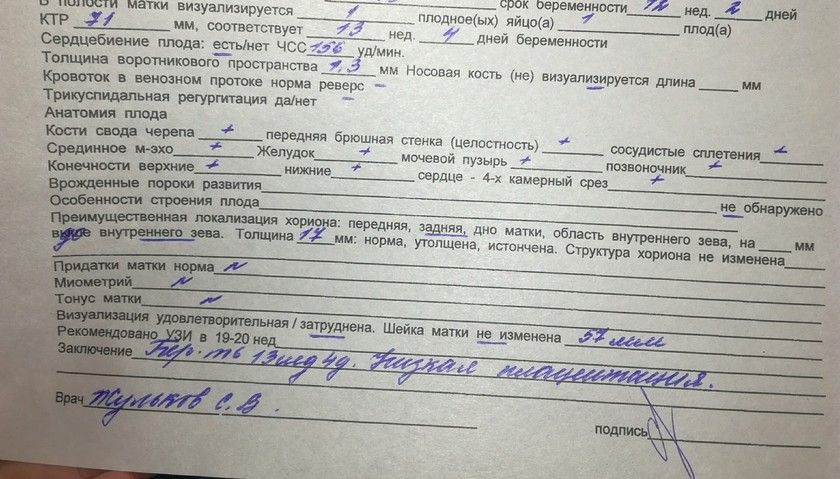 В полости матки визуализируется 1 плодное(ых) яйцо(а) 1 плод(а) срок беременности 12 нед. 2 дней
КТР 71 мм, соответствует 13 нед. 4 дней беременности
Сердцебиение плода: есть/нет ЧСС 156 уд/мин.
Толщина воротникового пространства 1,3 мм Носовая кость (не) визуализируется длина мм
Кровоток в венозном протоке норма реверс –
Трикуспидальная регургитация да/нет –
Анатомия плода
Кости свода черепа + передняя брюшная стенка (целостность) + сосудистые сплетения +
Срединное м-эхо + Желудок + мочевой пузырь + позвоночник +
Конечности верхние + нижние + сердце - 4-х камерный срез +
Врожденные пороки развития
Особенности строения плода не обнаружено
Преимущественная локализация хориона: передняя, задняя, дно матки, область внутреннего зева, на мм
выше до внутреннего зева. Толщина 17 мм: норма, утолщена, истончена. Структура хориона не изменена
Придатки матки норма N
Миометрий N
Тонус матки N
Визуализация удовлетворительная / затруднена. Шейка матки не изменена 57 мм
Рекомендовано УЗИ в 19-20 нед
Заключение Бер-ть 13 нед 4д. Низкая плацентация.
Врач Жульков С. В.
подпись